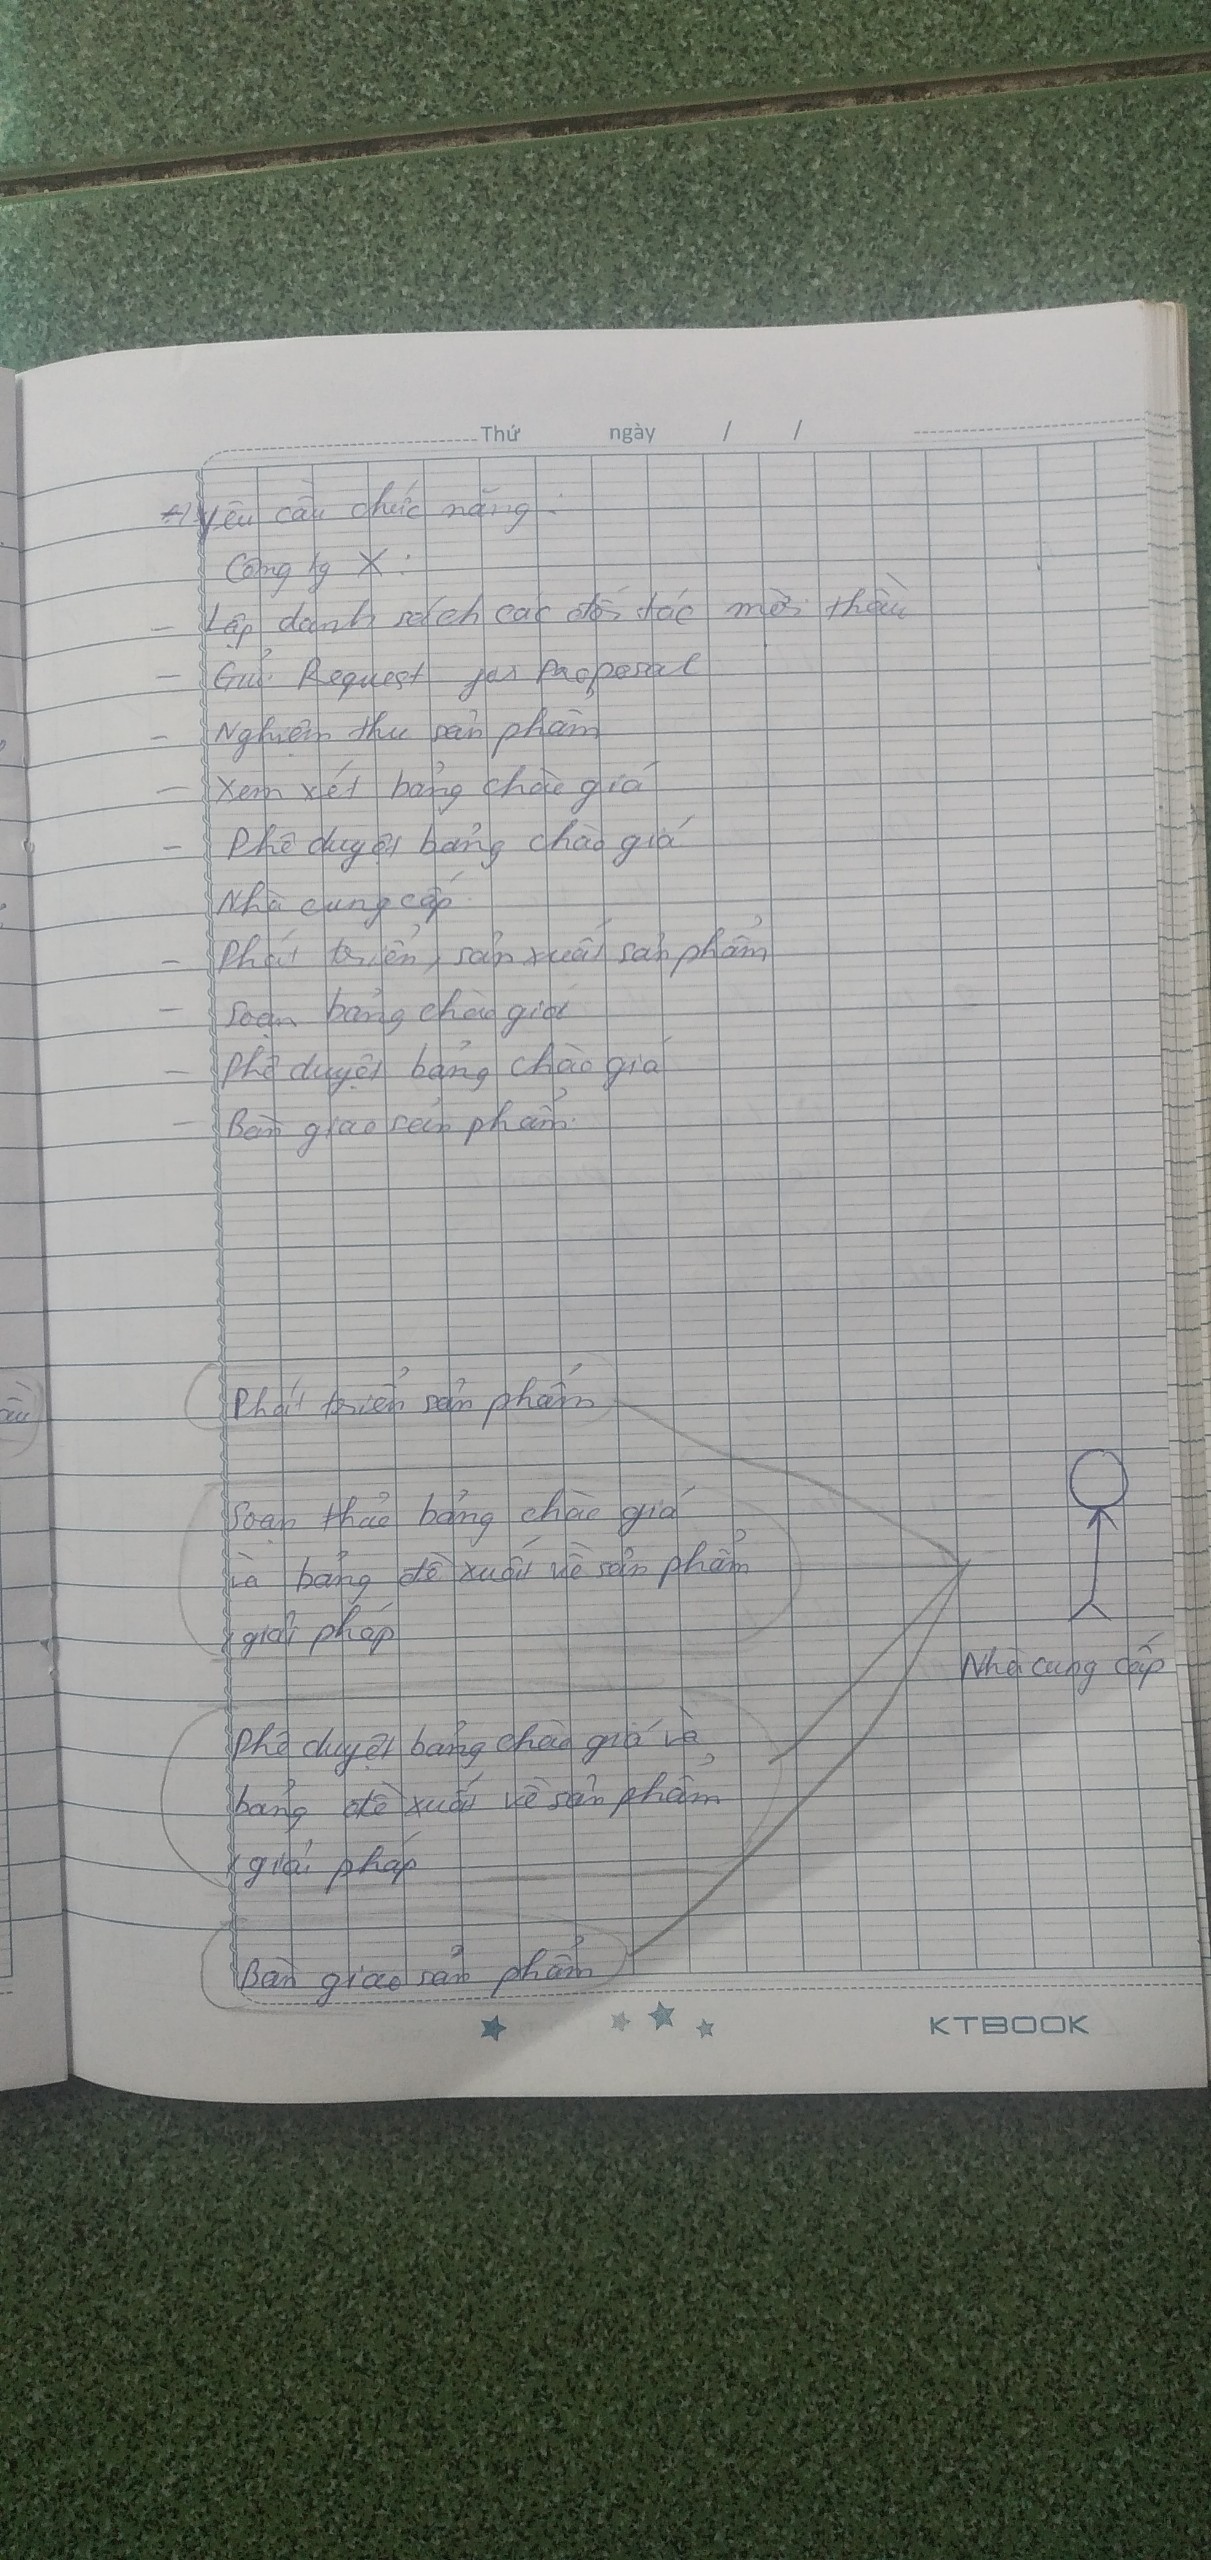 Thứ ngày / /
Yêu cầu chức năng :
Công ty X :
- Lập danh sách các đối tác mời thầu
- Gửi Request for Proposal
- Nghiệm thu sản phẩm
- Xem xét bảng chào giá
- Phê duyệt bảng chào giá
Nhà cung cấp
- Phát triển, sản xuất sản phẩm
- Soạn bảng chào giá
- Phê duyệt bảng chào giá
- Bàn giao sản phẩm.
Phát triển sản phẩm
Soạn thảo bảng chào giá
và bảng đề xuất về sản phẩm
, giải pháp
Nhà cung cấp
Phê duyệt bảng chào giá và
bảng đề xuất về sản phẩm
, giải pháp
Bàn giao sản phẩm
KTBOOK